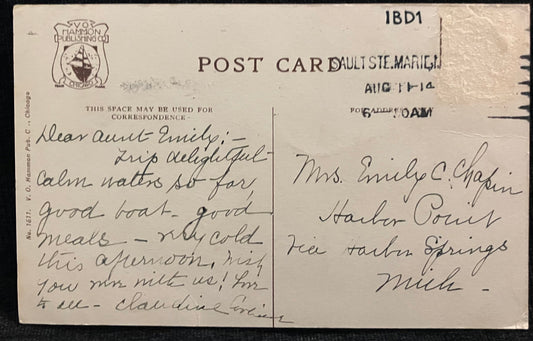 V.O.
HAMMON
PUBLISHING CO.
CHICAGO
POST CARD
IBD1
SAULT STE. MARIE,
AUG 11 14
6 30AM
THIS SPACE MAY BE USED FOR
CORRESPONDENCE
POST ADDRESS ONLY
No. 1651. V. O. Hammon Pub. Co., Chicago
Dear Aunt Emily:-
Trip delightful
calm waters so far,
good boat - good
meals - very cold
this afternoon. Wish
you were with us! Love
to all - Claudine
Mrs. Emily C. Chapin
Harbor Point
Vice Harbor Springs
Mich -